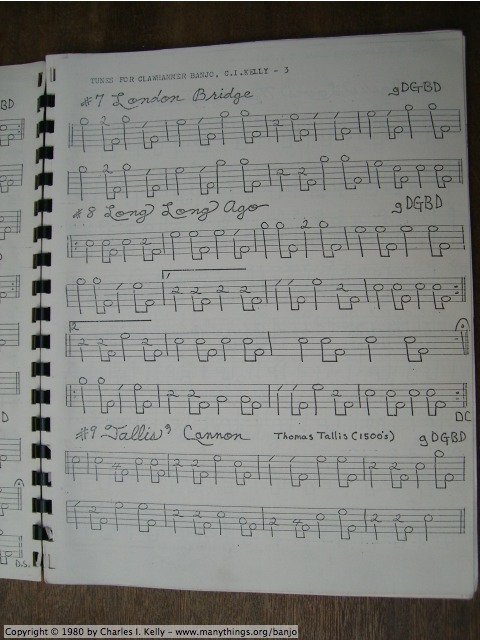 TUNES FOR CLAWHAMMER BANJO, C.I.KELLY - 3
#7 London Bridge gDGBD
#8 Long, Long Ago gDGBD
1
2
DC
#9 Tallis' Cannon Thomas Tallis (1500's) gDGBD
BD
D
D.S.
Copyright © 1980 by Charles I. Kelly - www.manythings.org/banjo